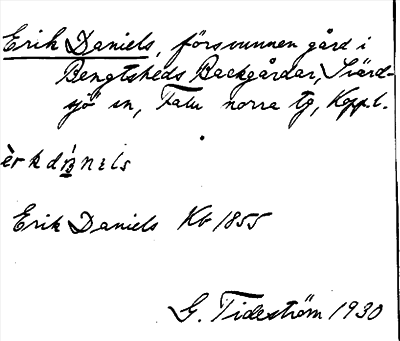 Erik Daniels, försvunnen gård i
Bengtsheds Backgårdar, Svärd-
sjö sn, Falu norra tg, Koppl.
Erik Daniels Kb 1855
G. Tideström 1930